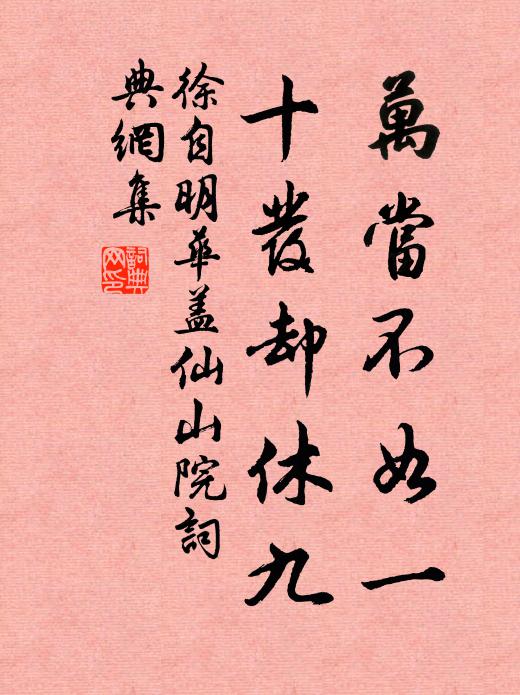 萬當不如一
十發却休九
徐自明華盖仙山院詞
典網集
詞典
网印